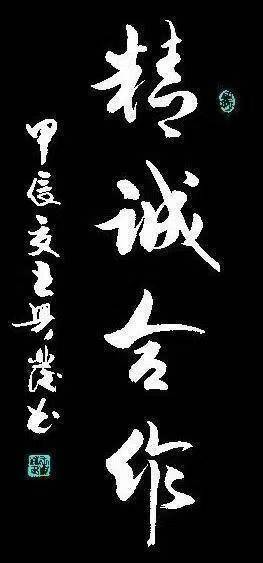 精诚合作
甲辰夏王兴茂书